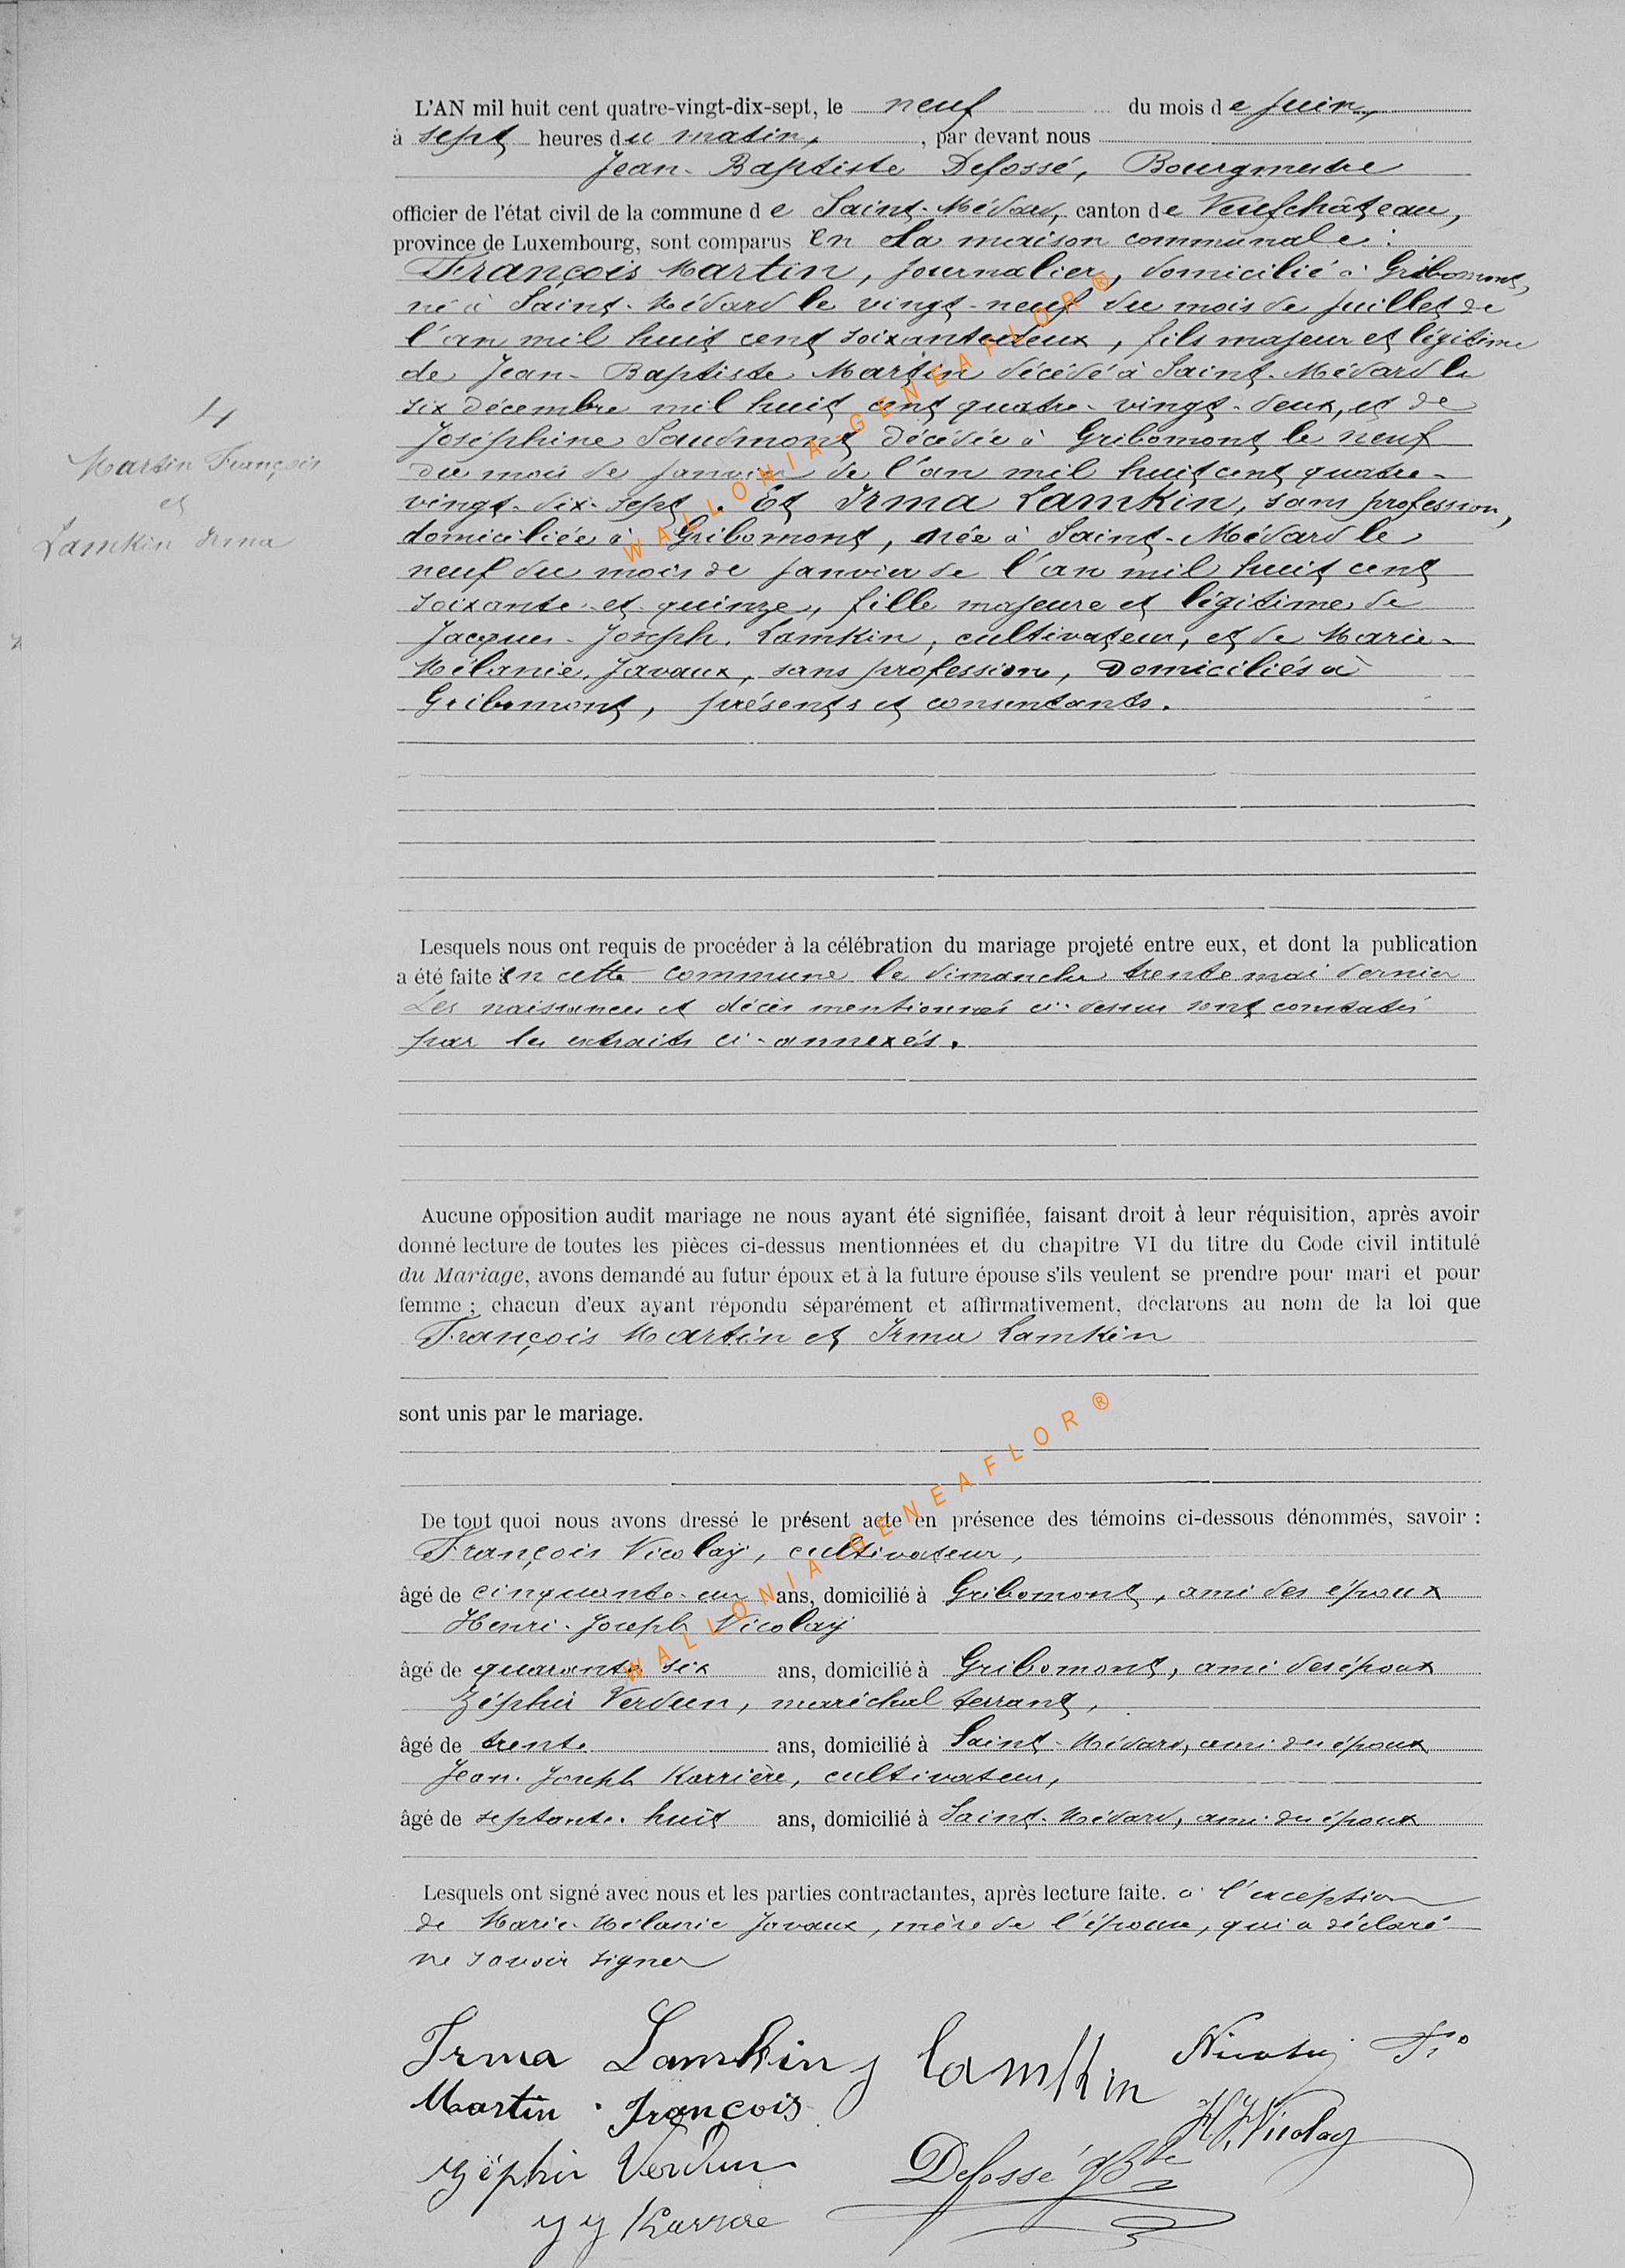 L'AN mil huit cent quatre-vingt-dix-sept, le neuf du mois de juin,
à sept heures du matin, , par devant nous
Jean-Baptiste Defossé, Bourgmestre
officier de l'état civil de la commune de Saint-Médard, canton de Neufchâteau,
province de Luxembourg, sont comparus en la maison communale :
François Martin, journalier, domicilié à Gribomont,
né à Saint-Médard le vingt-neuf du mois de juillet de
l'an mil huit cent soixante-deux, fils majeur et légitime
de Jean-Baptiste Martin décédé à Saint-Médard le
six décembre mil huit cent quatre-vingt-deux, et de
Joséphine Saudmont décédée à Gribomont le neuf
du mois de janvier de l'an mil huit cent quatre-
vingt-dix-sept. Et Irma Lamkin, sans profession,
domiciliée à Gribomont, née à Saint-Médard le
neuf du mois de janvier de l'an mil huit cent
soixante-et-quinze, fille majeure et légitime de
Jacques-Joseph Lamkin, cultivateur, et de Marie-
Mélanie Javaux, sans profession, domiciliés à
Gribomont, présents et consentants.
4
Martin François
et
Lamkin Irma
Lesquels nous ont requis de procéder à la célébration du mariage projeté entre eux, et dont la publication
a été faite en cette commune le dimanche trente mai dernier
Les naissances et décès mentionnés ci-dessus sont constatés
par les extraits ci-annexés.
Aucune opposition audit mariage ne nous ayant été signifiée, faisant droit à leur réquisition, après avoir
donné lecture de toutes les pièces ci-dessus mentionnées et du chapitre VI du titre du Code civil intitulé
du Mariage, avons demandé au futur époux et à la future épouse s'ils veulent se prendre pour mari et pour
femme ; chacun d'eux ayant répondu séparément et affirmativement, déclarons au nom de la loi que
François Martin et Irma Lamkin
sont unis par le mariage.
De tout quoi nous avons dressé le présent acte en présence des témoins ci-dessous dénommés, savoir :
François Nicolaÿ, cultivateur,
âgé de cinquante-un ans, domicilié à Gribomont, ami des époux
Henri-Joseph Nicolaÿ
âgé de quarante six ans, domicilié à Gribomont, ami des époux
Zéphir Verdun, maréchal ferrant,
âgé de trente ans, domicilié à Saint-Médard, ami des époux
Jean-Joseph Karrière, cultivateur,
âgé de septante-huit ans, domicilié à Saint-Médard, ami des époux
Lesquels ont signé avec nous et les parties contractantes, après lecture faite. à l'exception
de Marie-Mélanie Javaux, mère de l'épouse, qui a déclaré
ne savoir signer
Irma Lamkin j Lamkin Nicolaÿ
Martin François H. J. Nicolay
Zéphir Verdun Defossé JBte
WALLONIA GENEAFLOR ®
WALLONIA GENEAFLOR ®